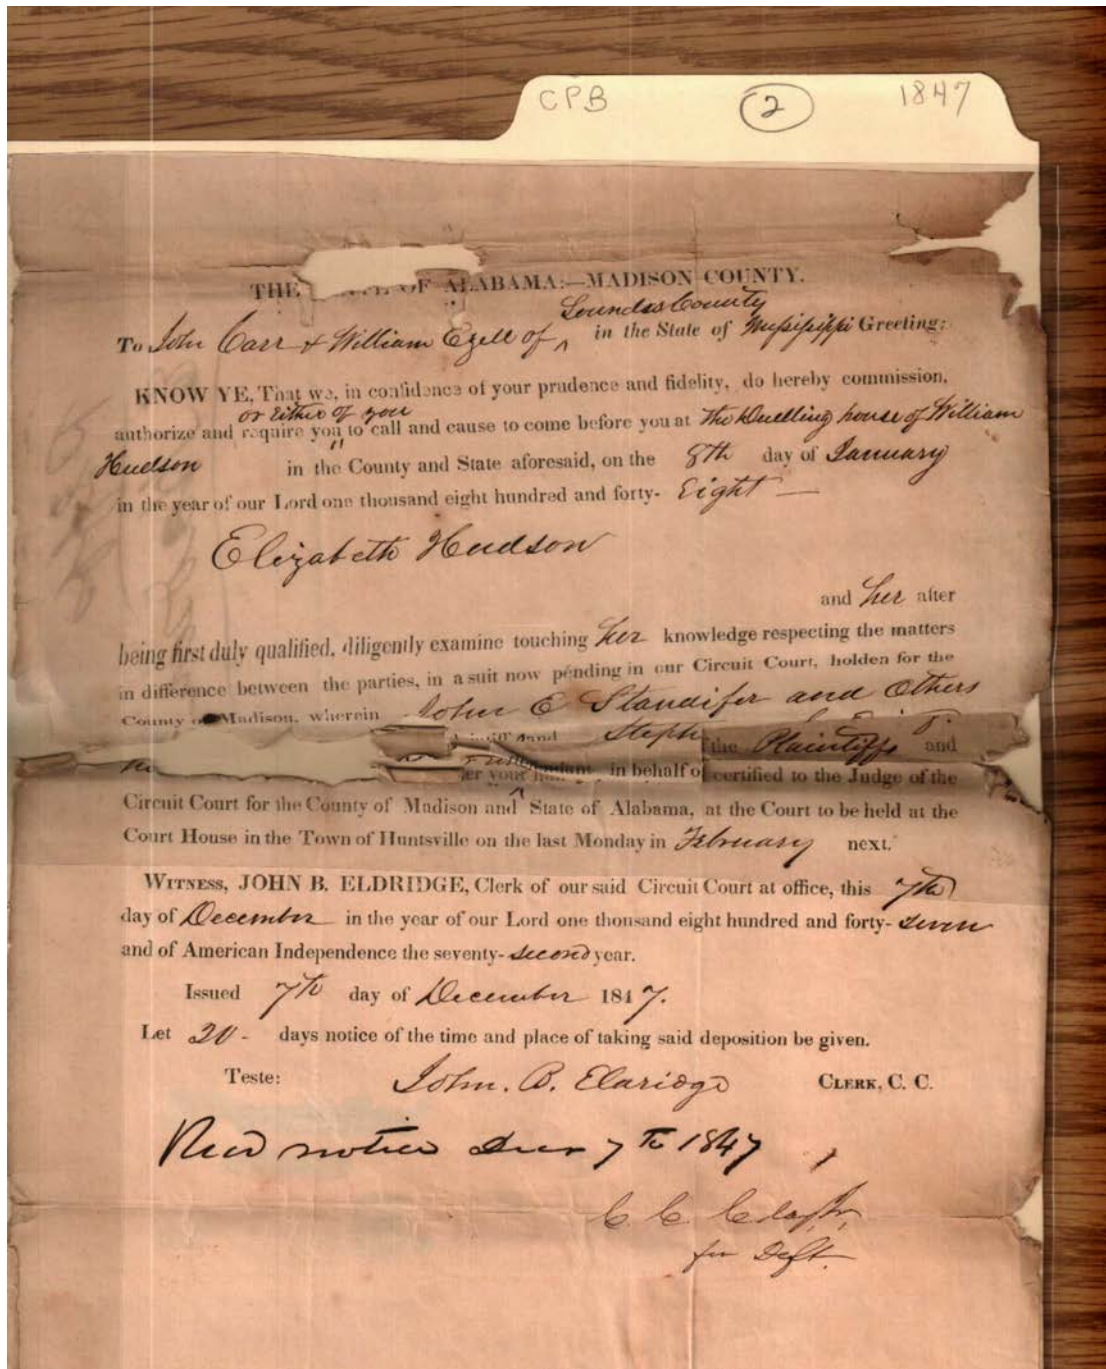 CPB 2 1847
THE OF ALABAMA:—MADISON COUNTY.
Lowndes County
To John Carr & William Ezell of ^ in the State of Mississippi Greeting:
KNOW YE, That we, in confidence of your prudence and fidelity, do hereby commission,
or either of you
authorize and require you to call and cause to come before you at the Dwelling house of William
Hudson in the County and State aforesaid, on the 8th day of January
in the year of our Lord one thousand eight hundred and forty- Eight —
Elizabeth Hudson
and her after
being first duly qualified, diligently examine touching her knowledge respecting the matters
in difference between the parties, in a suit now pending in our Circuit Court, holden for the
County of Madison, wherein John E Standifer and Others
and Steph the Plaintiffs and
er your in behalf of certified to the Judge of the
Circuit Court for the County of Madison and ^ State of Alabama, at the Court to be held at the
Court House in the Town of Huntsville on the last Monday in February next.
WITNESS, JOHN B. ELDRIDGE, Clerk of our said Circuit Court at office, this 7th
day of December in the year of our Lord one thousand eight hundred and forty- seven
and of American Independence the seventy- second year.
Issued 7th day of December 1847.
Let 20- days notice of the time and place of taking said deposition be given.
Teste: John. B. Eldridge CLERK, C. C.
Recd notice Decr 7th 1847
C. C. Clay Jr,
for Deft.